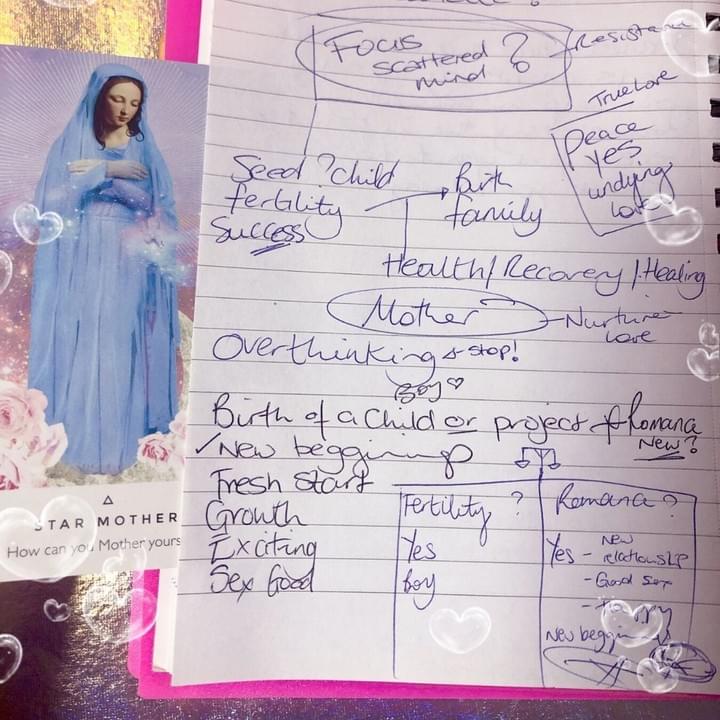 Focus
scattered
mind ?
True Love
Peace
Yes
undying
Love
Seed ? child
fertility
Success
Birth
family
Health/Recovery/Healing
Mother
Nurture
Love
Overthinking
stop!
Boy ♡
Birth of a child or project
New?
✓New beggining
Fresh start
Growth
Exciting
Sex Good
Fertility ?
Yes
boy
Romana ?
Yes - New
relationship
- Good Sex
New beggin
STAR MOTHER
How can you Mother yours